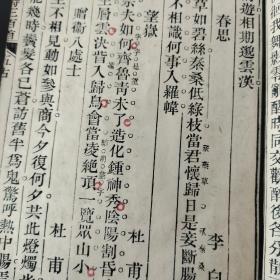 遊相期邈雲漢
春思
李白
草如碧絲秦桑低綠枝當君懷歸日是妾斷腸
不相識何事入羅幃
望嶽
杜甫
夫如何齊魯青未了造化鍾神秀陰陽割昏
層雲決眥入歸鳥會當凌絕頂一覽眾山小
贈衛八處士
杜甫
生不相見動如參與商今夕復何夕共此燈燭
能幾時鬢髮各已蒼訪舊半為鬼驚呼熱中腸
三百首
五古